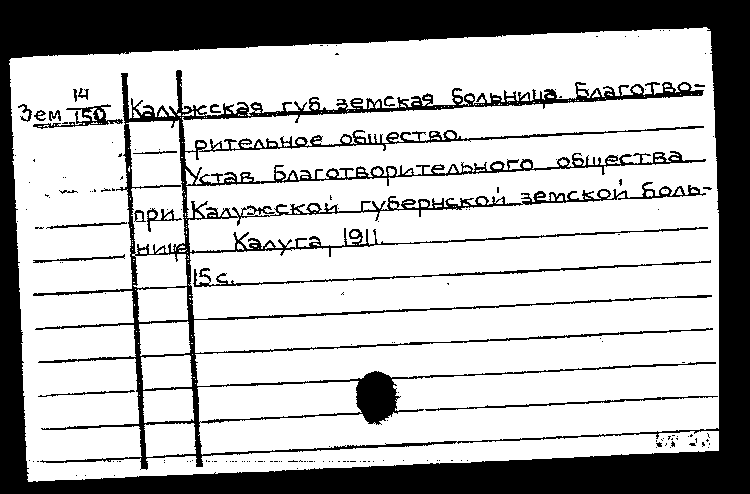 Зем 14/150 Калужская губ. земская больница. Благотво-
рительное общество.
Устав благотворительного общества
при Калужской губернской земской боль-
нице. Калуга, 1911.
15 с.